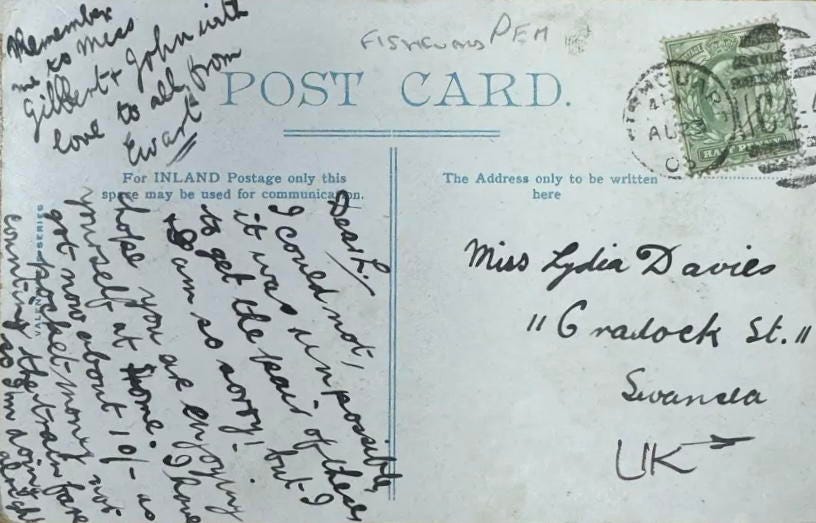 Remember
me to Miss
Gilbert + John with
love to all from
Ewart
FISHGUARD PEM
POST CARD.
For INLAND Postage only this
space may be used for communication.
The Address only to be written
here
Dear L.,
I could not,
it was impossible,
to get the pair of these
but I
am so sorry! I
hope you are enjoying
yourself at Home. I have
got now about 10/- as
pocket-money not
counting the train fare
so I'm doing
alright
Miss Lydia Davies
"Cradock St."
Swansea
UK
VALENTINE SERIES
HALFPENNY